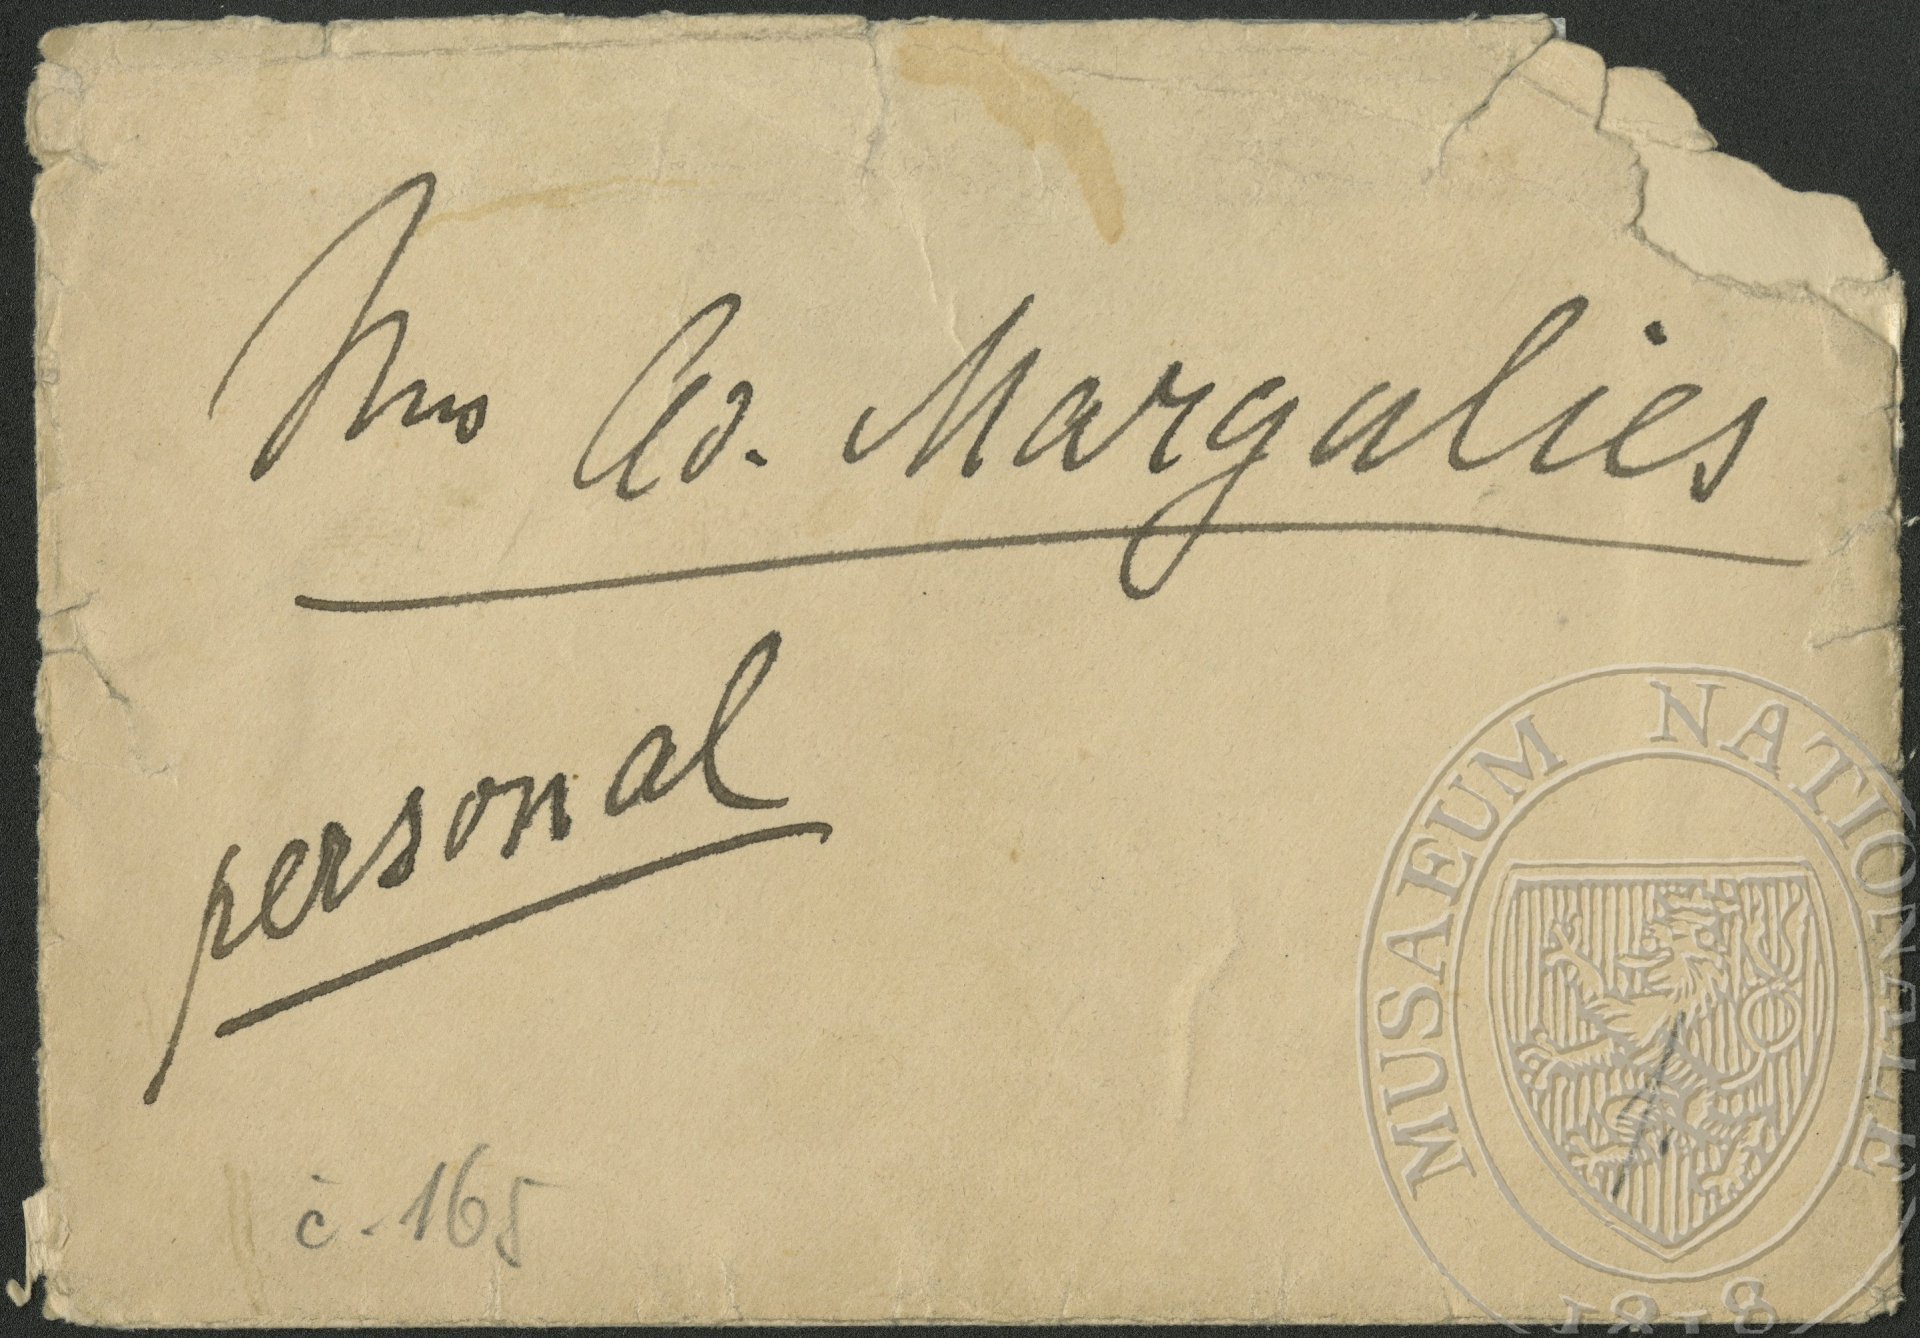 Mrs Ad. Margulies
personal
č. 165
MUSAEUM NATIONALE
1818